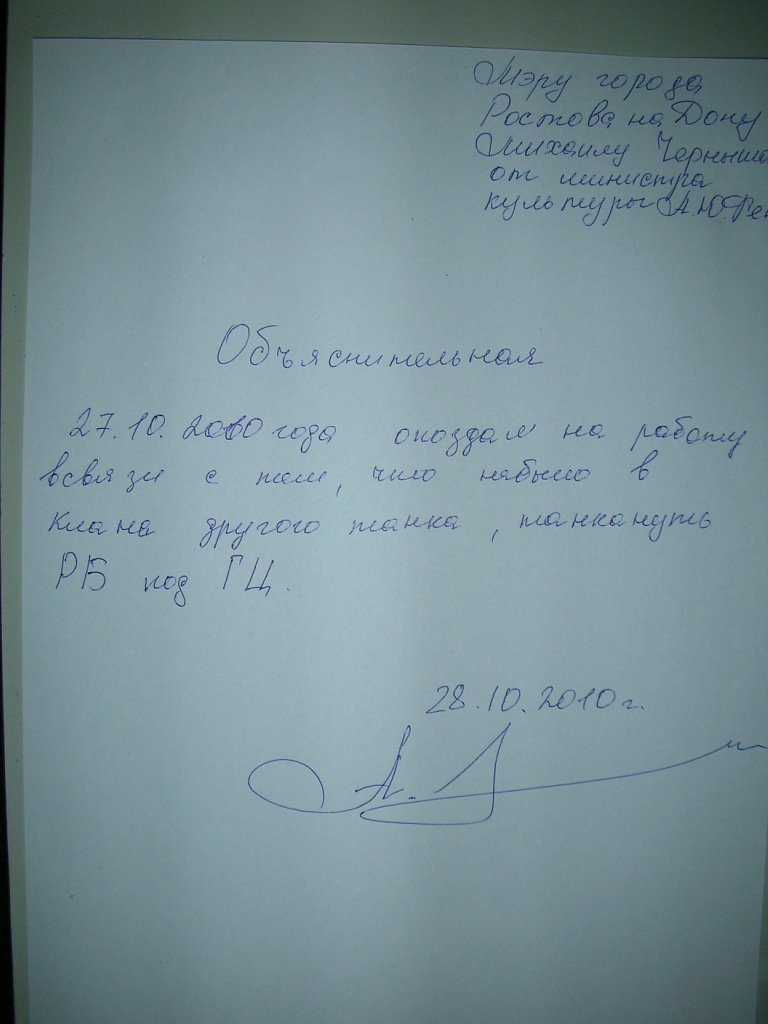 Мэру города
Ростова на Дону
Михаилу Черныше
от министра
культуры А.Ю.Фен
Объяснительная
27.10.2010 года опоздал на работу
всвязи с тем, что небыло в
клана другого танка, танкануть
РБ под ГЦ.
28.10.2010г.